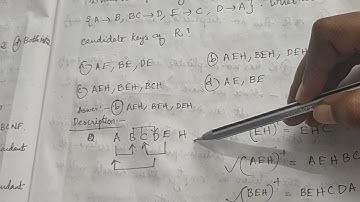 {A→B, BC→D, E→C, D→A}. What
candidate keys of R?
a) AE, BE, DE
b) AEH, BEH, DEH
c) AEH, BEH, BCH
d) AE, BE
Answer:- b) AEH, BEH, DEH
Description:-
A B C D E H
(EH)⁺ = EHC
√(AEH)⁺ = AEHBC
√(BEH)⁺ = BEHCDA
a) Both
BCNF